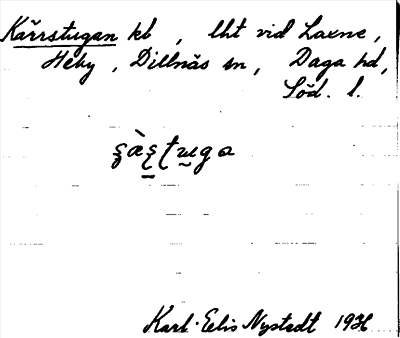 Kärrstugan kb , lht vid Laxne,
Heby, Dillnäs sn, Daga hd,
Söd. l.
Karl-Eelis Nystedt 1936